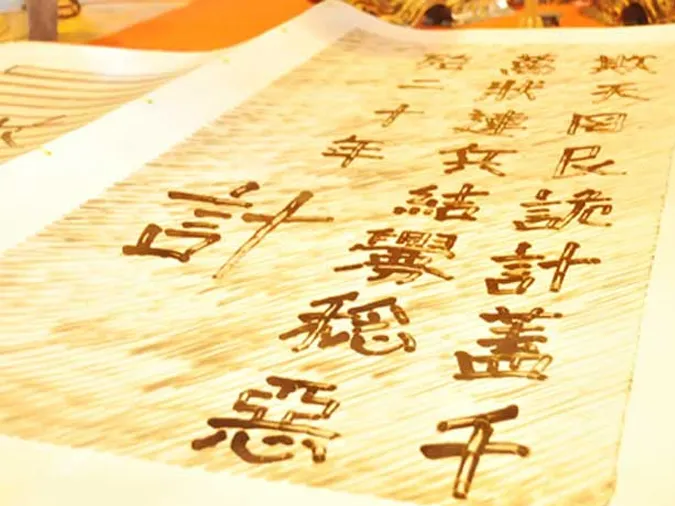 欺天罔民詭計蓋千
萬狀連兵結釁稔惡
殆二十年
計